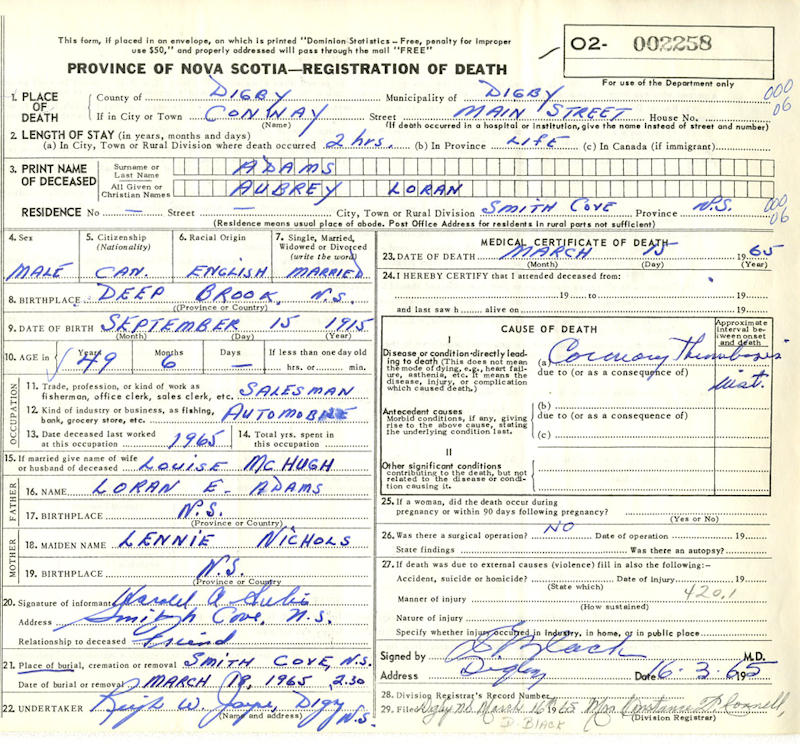 This form, if placed in an envelope, on which is printed "Dominion Statistics – Free, penalty for improper
use $50," and properly addressed will pass through the mail "FREE"
O2- 002258
PROVINCE OF NOVA SCOTIA—REGISTRATION OF DEATH
For use of the Department only
1. PLACE OF DEATH County of DIGBY Municipality of DIGBY 000
If in City or Town CONWAY Street MAIN STREET House No. 06
(Name) (If death occurred in a hospital or institution, give the name instead of street and number)
2. LENGTH OF STAY (in years, months and days)
(a) In City, Town or Rural Division where death occurred 2 hrs. (b) In Province LIFE (c) In Canada (if immigrant)
3. PRINT NAME OF DECEASED Surname or Last Name ADAMS
All Given or Christian Names AUBREY LORAN
RESIDENCE No — Street — City, Town or Rural Division SMITH COVE Province N.S. 000 06
(Residence means usual place of abode. Post Office Address for residents in rural parts not sufficient)
4. Sex 5. Citizenship (Nationality) 6. Racial Origin 7. Single, Married, Widowed or Divorced (write the word)
MALE CAN. ENGLISH MARRIED
8. BIRTHPLACE DEEP BROOK, N.S.
(Province or Country)
9. DATE OF BIRTH SEPTEMBER 15 1915
(Month) (Day) (Year)
10. AGE in Years Months Days If less than one day old
49 6 — hrs. or min.
OCCUPATION
11. Trade, profession, or kind of work as
fisherman, office clerk, sales clerk, etc. SALESMAN
12. Kind of industry or business, as fishing,
bank, grocery store, etc. AUTOMOBILE
13. Date deceased last worked at this occupation 1965 14. Total yrs. spent in this occupation
15. If married give name of wife
or husband of deceased LOUISE MCHUGH
FATHER
16. NAME LORAN E. ADAMS
17. BIRTHPLACE N.S.
(Province or Country)
MOTHER
18. MAIDEN NAME LENNIE NICHOLS
19. BIRTHPLACE N.S.
(Province or Country)
20. Signature of informant
Address Smith Cove, N.S.
Relationship to deceased Friend
21. Place of burial, cremation or removal SMITH COVE, N.S.
Date of burial or removal MARCH 19, 1965 2.30
22. UNDERTAKER W. Jayne, Digby N.S.
(Name and address)
MEDICAL CERTIFICATE OF DEATH
23. DATE OF DEATH MARCH 15 1965
(Month) (Day) (Year)
24. I HEREBY CERTIFY that I attended deceased from:
19 to 19
and last saw h alive on 19
CAUSE OF DEATH
Approximate interval between onset and death
I
Disease or condition directly leading to death (This does not mean the mode of dying, e.g., heart failure, asthenia, etc. It means the disease, injury, or complication which caused death.)
(a) Coronary Thrombosis
due to (or as a consequence of) inst.
Antecedent causes
Morbid conditions, if any, giving rise to the above cause, stating the underlying condition last.
(b)
due to (or as a consequence of)
(c)
II
Other significant conditions
contributing to the death, but not related to the disease or condition causing it.
25. If a woman, did the death occur during
pregnancy or within 90 days following pregnancy?
(Yes or No)
26. Was there a surgical operation? NO Date of operation 19
State findings Was there an autopsy?
27. If death was due to external causes (violence) fill in also the following:-
Accident, suicide or homicide? Date of injury 19
(State which)
Manner of injury 420.1
(How sustained)
Nature of injury
Specify whether injury occurred in industry, in home, or in public place
Signed by Black M.D.
Address Digby Date 16-3-65 195
28. Division Registrar's Record Number
29. Filed Digby NS March 16th 1965 Mrs Constance
D. BLACK (Division Registrar)